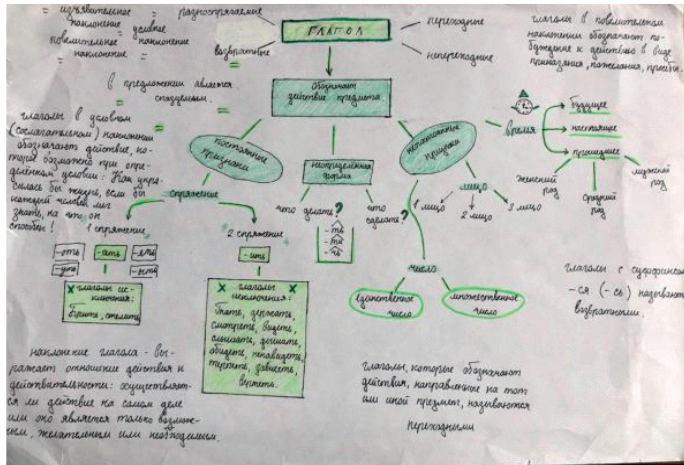 = изъявительное = разноспрягаемые
наклонение условное
повелительное = наклонение
= наклонение =
возвратные
ГЛАГОЛ
переходные
непереходные
глаголы в повелительном
наклонении обозначают по-
буждение к действию в виде
приказания, пожелания, просьбы.
Обозначает
действие предмета
в предложении является
сказуемым.
глаголы в условном
(сослагательном) наклонении
обозначают действие, ко-
торое возможно при опре-
делённом условии: Как укра-
силась бы жизнь, если бы
каждый человек мог
знать, на что он
способен!
постоянные
признаки
неопределённая
форма
непостоянные
признаки
время
будущее
настоящее
прошедшее
женский
род
средний
род
мужской
род
спряжение
1 спряжение
2 спряжение
что делать?
что
сделать?
-ть
-ти
-чь
лицо
1 лицо
2 лицо
3 лицо
-оть
-ать
-ять
-уть
-еть
-ить
глаголы ис-
ключения:
Брить, стелить
глаголы
исключения:
Гнать, держать,
смотреть, видеть,
слышать, дышать,
обидеть, ненавидеть,
терпеть, зависеть,
вертеть.
число
единственное
число
множественное
число
глаголы с суффиксом
-ся (-сь) называют
возвратными.
наклонение глагола - вы-
ражает отношение действия к
действительности: осуществляет-
ся ли действие на самом деле
или оно является только возмож-
ным, желательным или необходимым.
глаголы, которые обозначают
действия, направленные на тот
или иной предмет, называются
переходными